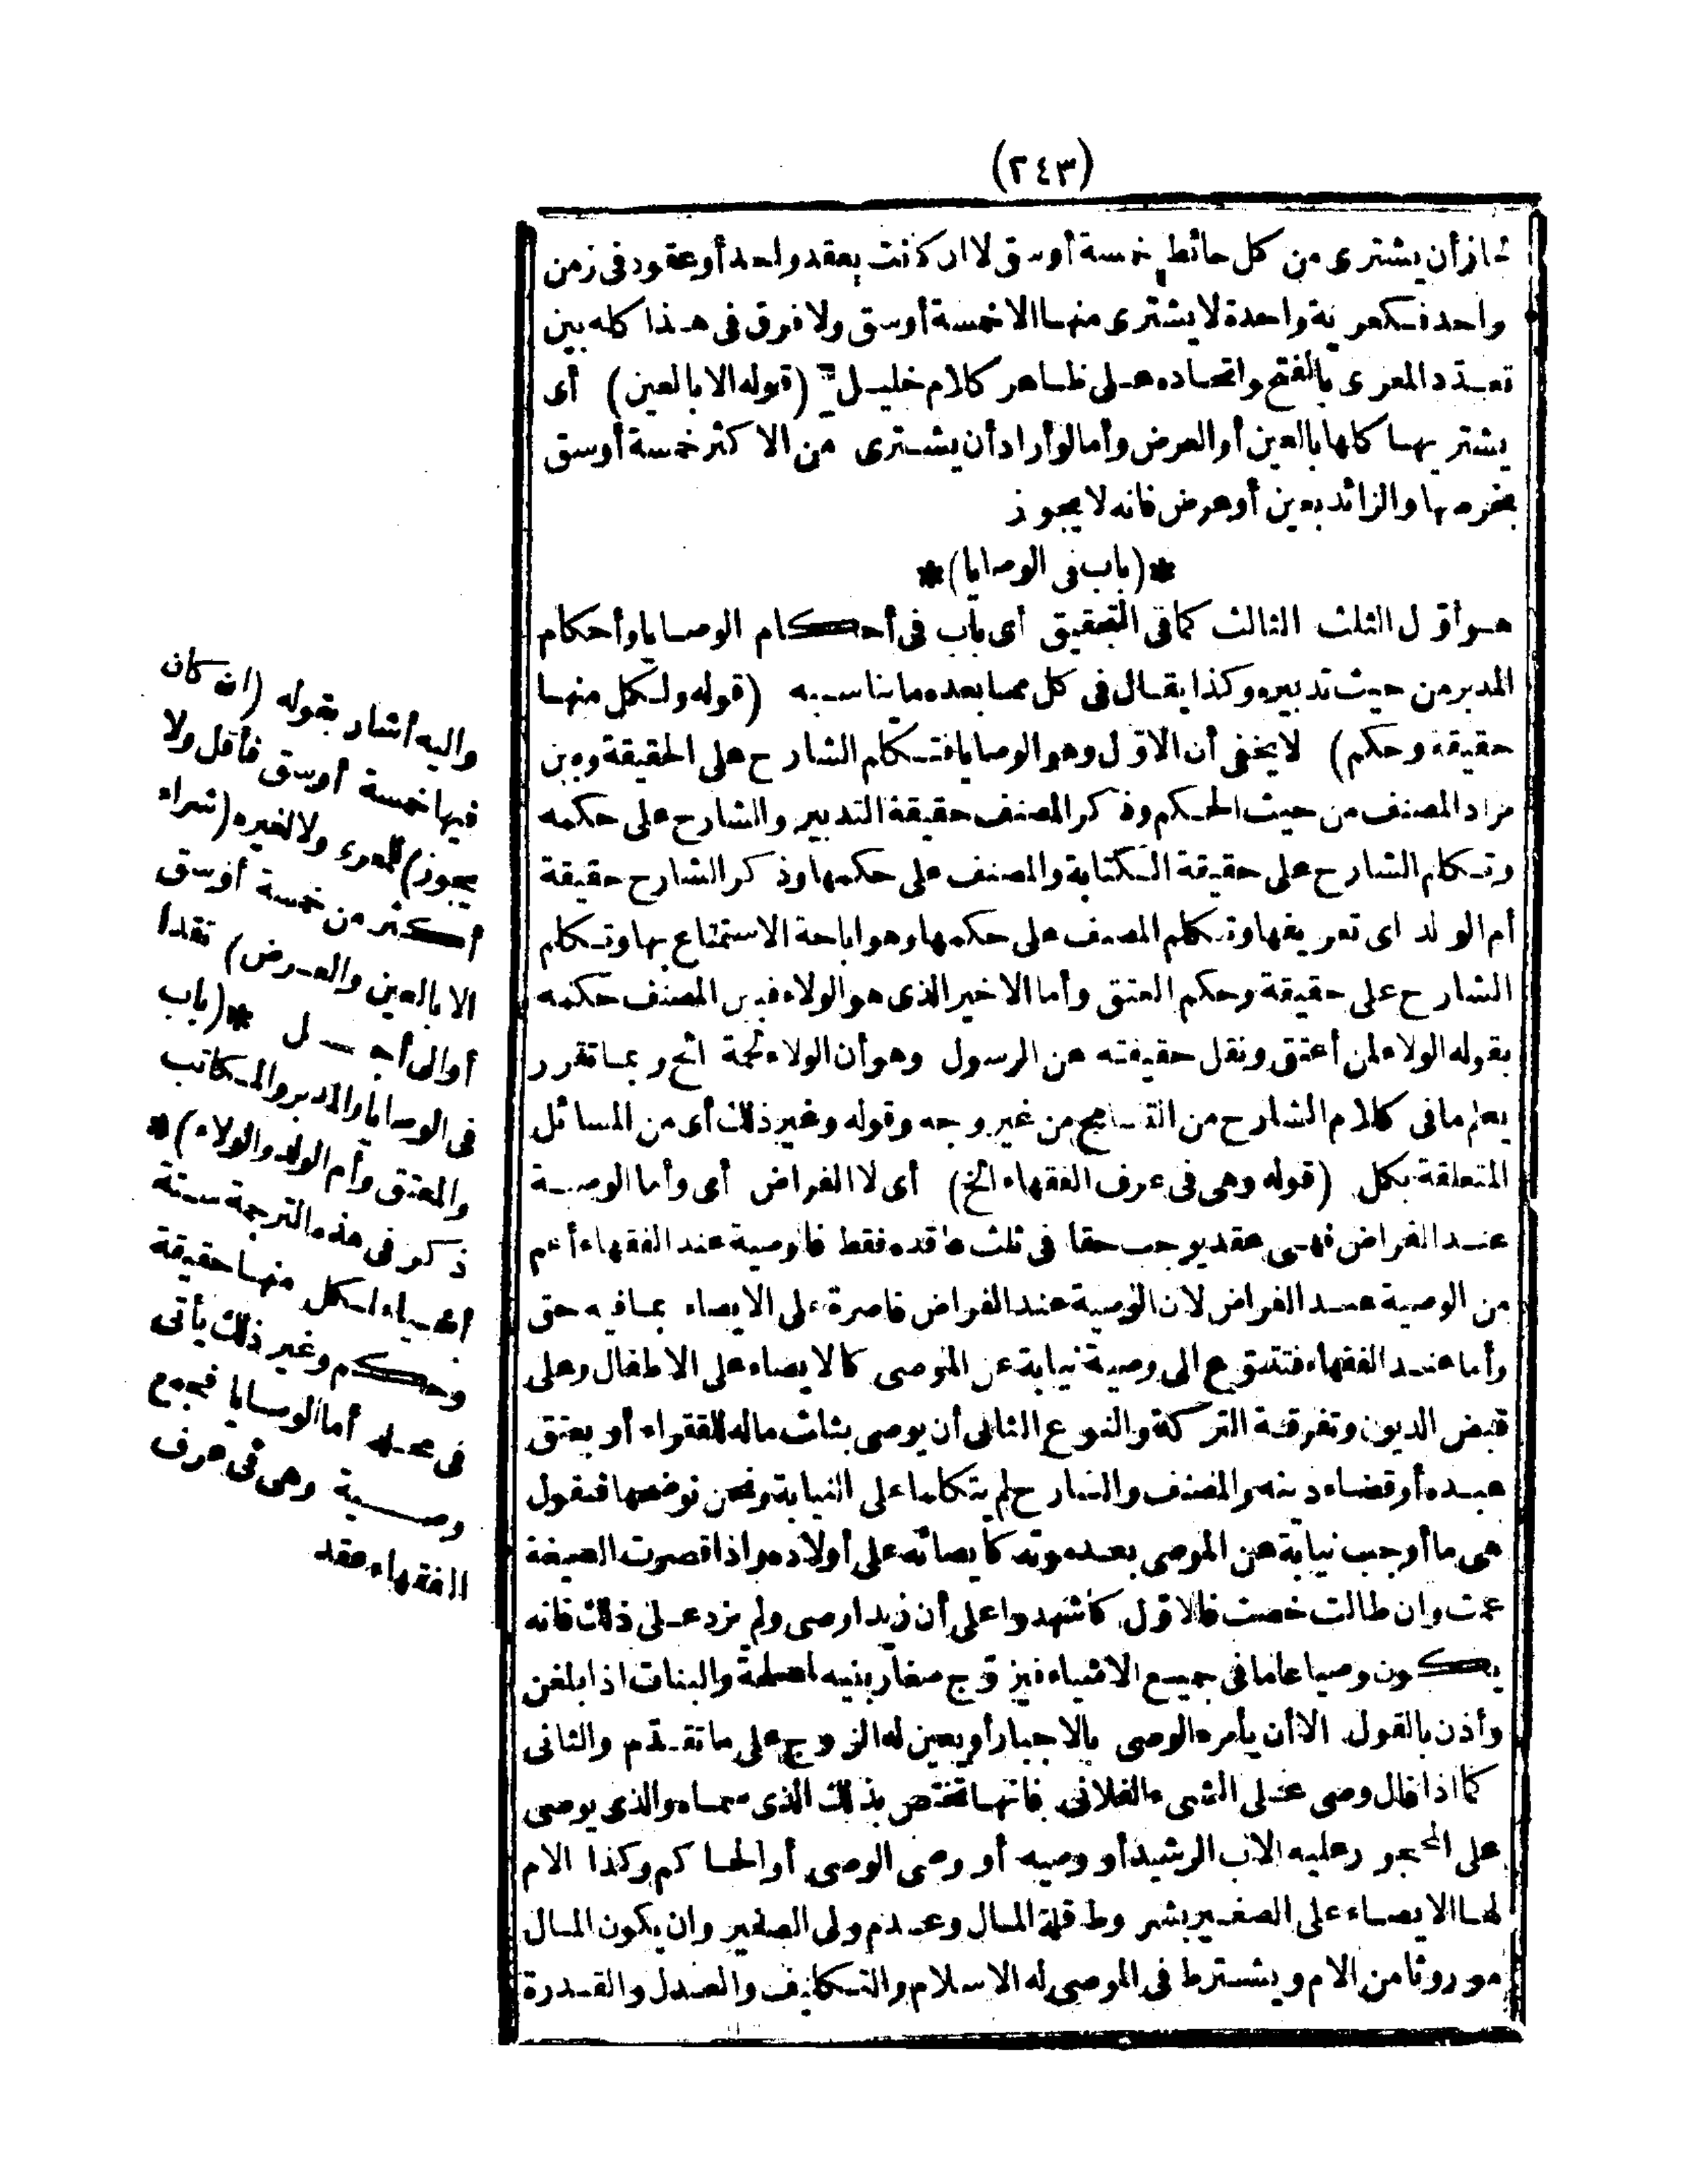 (٢٤٣)
لجاز أن يشترى من كل حائط خمسة أوسق لا ان كانت بعقد واحد أو عقود فى زمن
واحد فكعرية واحدة لا يشترى منها الا خمسة أوسق ولا فرق فى هذا كله بين
تعدّد المعرى بالفتح واتحاده على ظاهر كلام خليل (قوله الا بالعين) أى
يشتريها كلها بالعين أو العرض وأما لو أراد أن يشترى من الاكثر خمسة أوسق
بخرصها والزائد بعين أو عرض فانه لا يجوز
*(باب فى الوصايا)*
هو أوّل الثلث الثالث كما فى التحقيق أى باب فى أحكام الوصايا وأحكام
المدبر من حيث تدبيره وكذا يقال فى كل مما بعده ما يناسبه (قوله ولكل منها
حقيقة وحكم) لا يخفى أن الاوّل وهو الوصايا فتكلم الشارح على الحقيقة وبين
مراد المصنف من حيث الحكم وذكر المصنف حقيقة التدبير والشارح على حكمه
وتكلم الشارح على حقيقة الكتابة والمصنف على حكمها وذكر الشارح حقيقة
أم الولد اى تعريفها وتكلم المصنف على حكمها وهو اباحة الاستمتاع بها وتكلم
الشارح على حقيقة وحكم العتق وأما الاخير الذى هو الولاء فبين المصنف حكمه
بقوله الولاء لمن أعتق ونقل حقيقته عن الرسول وهو أن الولاء لحمة الخ وبما تقرر
يعلم ما فى كلام الشارح من التسامح من غير وجه وقوله وغير ذلك أى من المسائل
المتعلقة بكل (قوله وهى فى عرف الفقهاء الخ) أى لا الفراض أى وأما الوصية
عند الفراض فهى عقد يوجب حقا فى ثلث عاقده فقط فالوصية عند الفقهاء أعم
من الوصية عند الفراض لان الوصية عند الفراض قاصرة على الايصاء بما فيه حق
وأما عند الفقهاء فتتنوّع الى وصية نيابة عن الموصى كالايصاء على الاطفال وعلى
قبض الديون وتفرقة التركة والنوع الثانى أن يوصى بثلث ماله للفقراء أو بعتق
عبده أو قضاء دينه والمصنف والشارح لم يتكلما على النيابة ونحن نوضحها فنقول
هى ما أوجب نيابة عن الموصى بعد موته كايصائه على أولاده واذا قصرت الصيغة
عمت وان طالت خصت فالاول كاشهدوا على أن زيدا وصى ولم يزد على ذلك فانه
يكون وصيا عاما فى جميع الاشياء فيزوّج صغار بنيه لمصلحة والبنات اذا بلغن
وأذن بالقول الا أن يأمره الوصى بالاجبار أو يعين له الزوج على ما تقدّم والثانى
كما اذا قال وصى على الشىء الفلانى فانها تختص بذلك الذى سماه والذى يوصى
على المحجور عليه الاب الرشيد أو وصيه أو وصى الوصى أو الحاكم وكذا الام
لها الايصاء على الصغير بشروط قلة المال وعدم ولى الصغير وان يكون المال
موروثا من الام ويشترط فى الموصى له الاسلام والتكليف والعدل والقدرة
واليه أشار بقوله (ان كان
فيها خمسة أوسق فأقل ولا
يجوز) للمعرى ولا لغيره (شراء
أكثر من خمسة أوسق
الا بالعين والعرض) نقدا
أو الى أجل *(باب
فى الوصايا والمدبر والمكاتب
والمعتق وأم الولد والولاء)*
ذكر فى هذه الترجمة ستة
أشياء لكل منها حقيقة
وحكم وغير ذلك يأتى
فى محله أما الوصايا فجمع
وصية وهى فى عرف
الفقهاء عقد